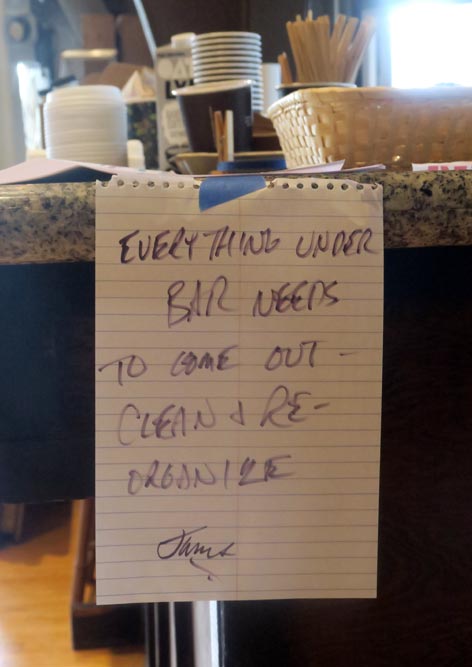 EVERYTHING UNDER
BAR NEEDS
TO COME OUT -
CLEAN & RE-
ORGANIZE